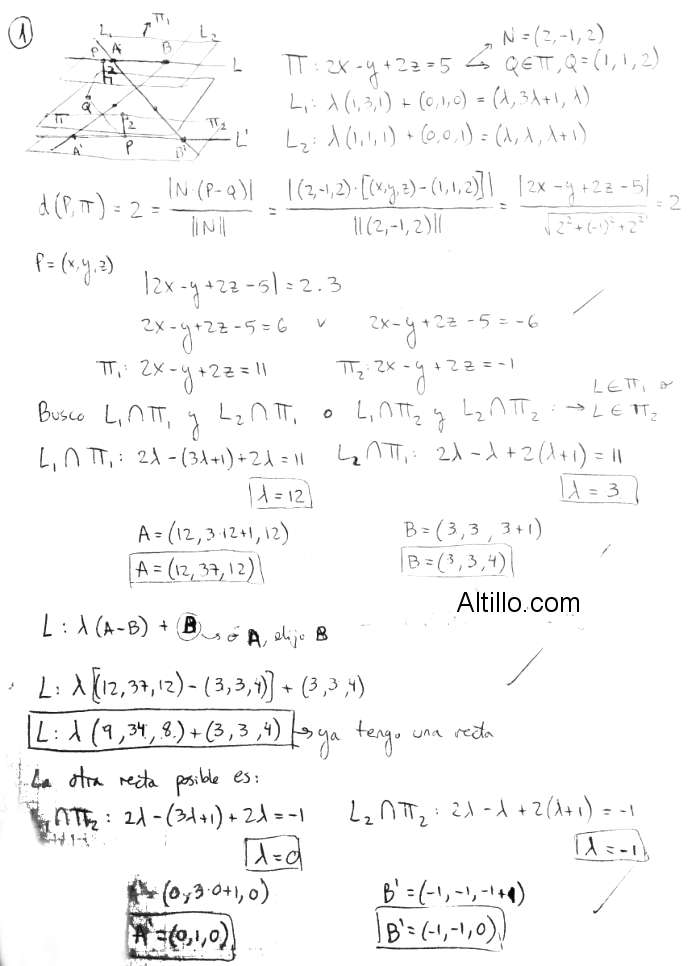 1
L₁ Π₁ L₂
P A B
L
2
Q
Π 2 Π₂
A' P B' L'
Π: 2x-y+2z=5 → N=(2,-1,2)
→ Q∈Π, Q=(1,1,2)
L₁: λ(1,3,1)+(0,1,0)=(λ,3λ+1,λ)
L₂: λ(1,1,1)+(0,0,1)=(λ,λ,λ+1)
d(P,Π)=2= |N·(P-Q)| / ||N|| = |(2,-1,2)·[(x,y,z)-(1,1,2)]| / ||(2,-1,2)|| = |2x-y+2z-5| / √(2²+(-1)²+2²) =2
P=(x,y,z)
|2x-y+2z-5|=2.3
2x-y+2z-5=6 v 2x-y+2z-5=-6
Π₁: 2x-y+2z=11 Π₂: 2x-y+2z=-1
Busco L₁∩Π₁ y L₂∩Π₁ o L₁∩Π₂ y L₂∩Π₂: → L∈Π₁ o L∈Π₂
L₁∩Π₁: 2λ-(3λ+1)+2λ=11 L₂∩Π₁: 2λ-λ+2(λ+1)=11
λ=12 λ=3
A=(12,3·12+1,12) B=(3,3,3+1)
A=(12,37,12) B=(3,3,4)
Altillo.com
L: λ(A-B)+B → ó A, elijo B
L: λ[(12,37,12)-(3,3,4)]+(3,3,4)
L: λ(9,34,8)+(3,3,4) → ya tengo una recta
La otra recta posible es:
L₁∩Π₂: 2λ-(3λ+1)+2λ=-1 L₂∩Π₂: 2λ-λ+2(λ+1)=-1
λ=0 λ=-1
A'=(0,3·0+1,0) B'=(-1,-1,-1+1)
A'=(0,1,0) B'=(-1,-1,0)